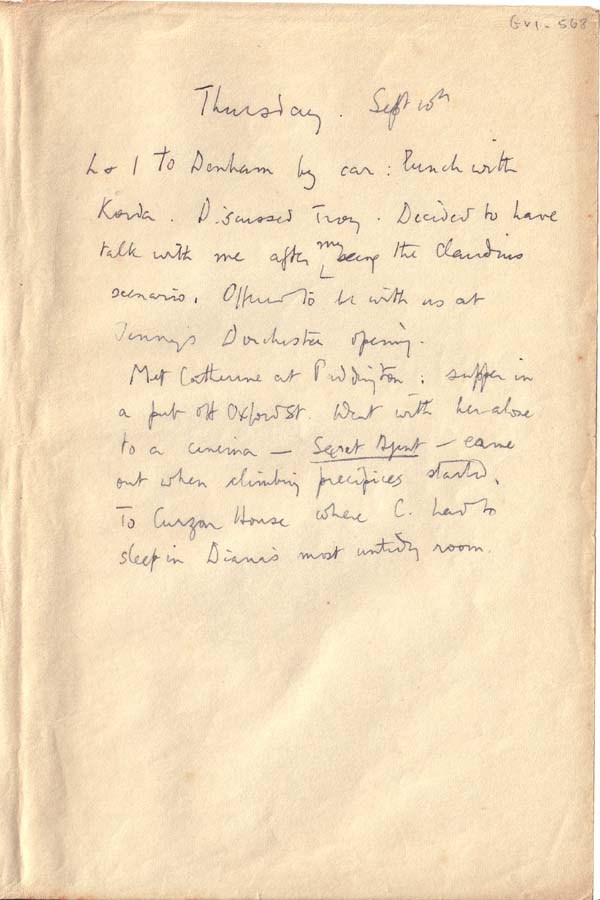 GVI - 568
Thursday. Sept 10th
L & I to Denham by car: lunch with
Korda. Discussed Troy. Decided to have
talk with me after my seeing the Claudius
scenario. Offered to be with us at
Jenny's Dorchester opening.
Met Catherine at Paddington: supper in
a pub off Oxford St. Went with her alone
to a cinema — Secret Agent — came
out when climbing precipices started.
To Curzon House where C. had to
sleep in Diana's most untidy room.